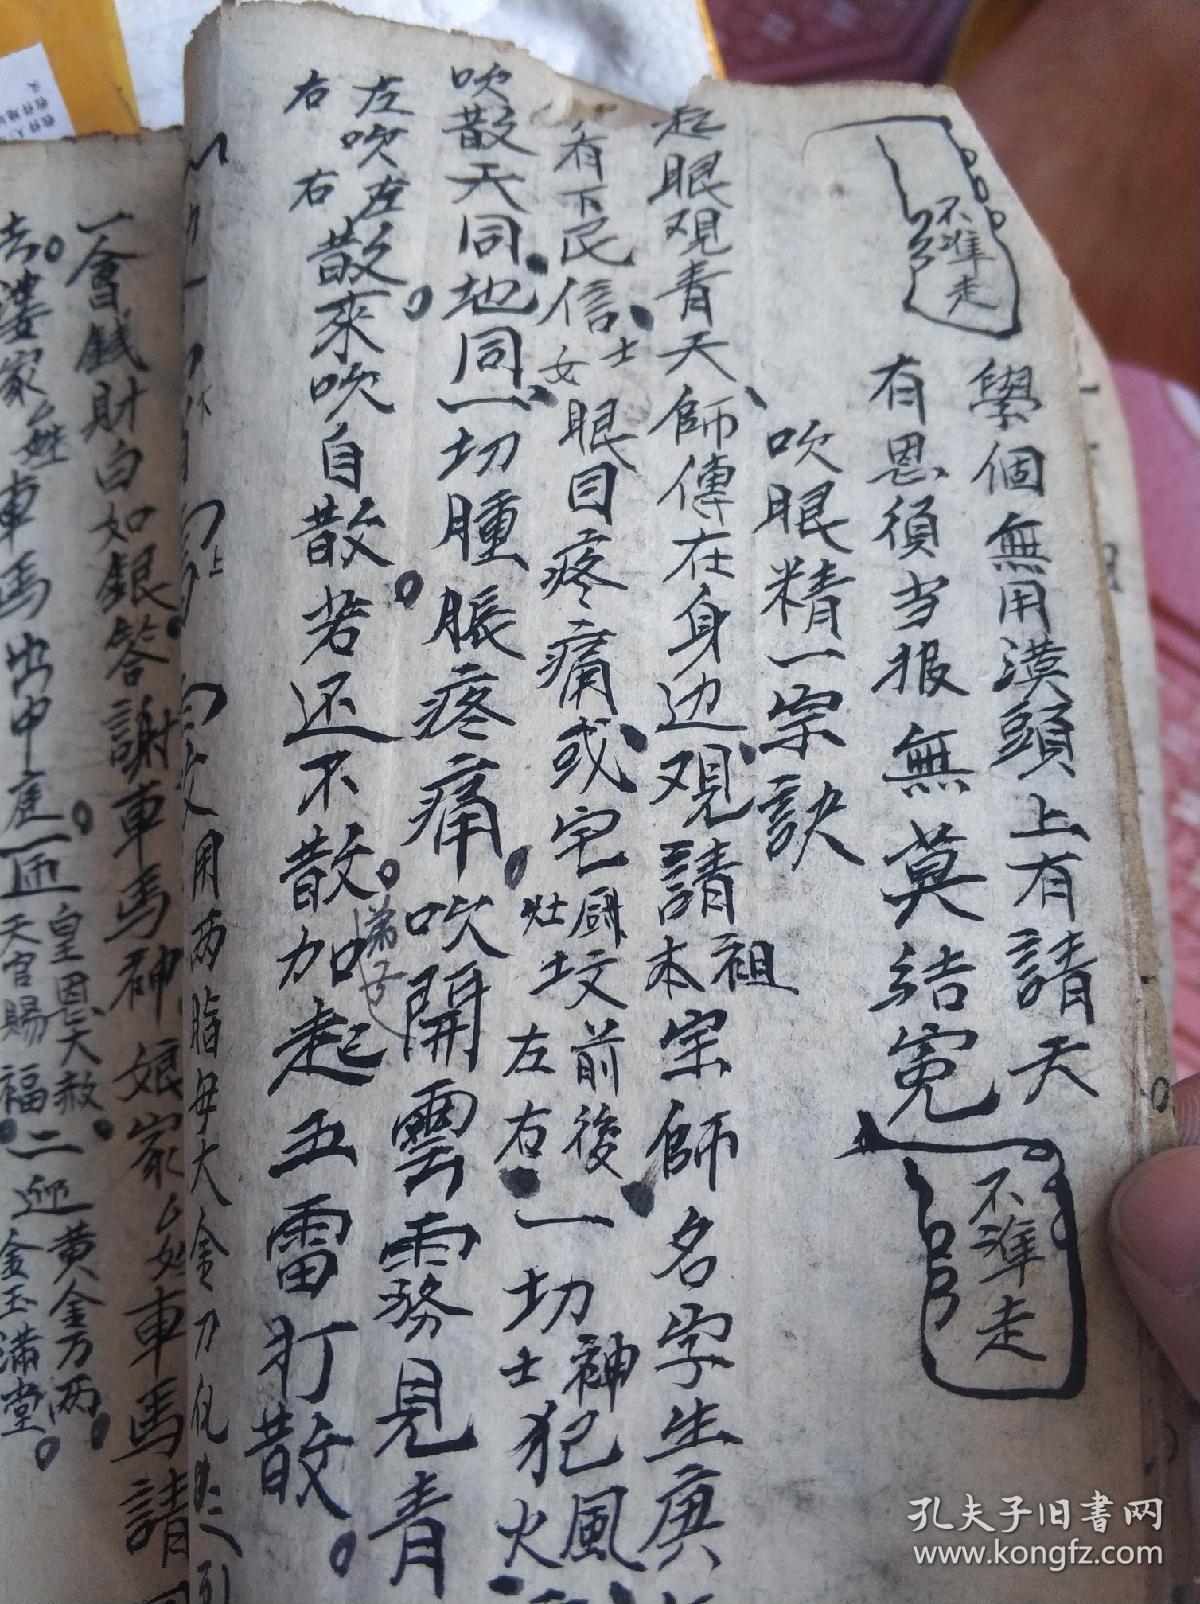 不準走
學個無用漢頭上有請天
有恩須当报無莫結冤
不準走
吹眼精一宗訣
起眼观青天師傅在身边观請祖本宗師名字生庚
看下民信士女眼目疼痛或宅厨灶坟前後左右一切神士犯風火
吹散天同地同一切腫脹疼痛吹開雲霧見青
左吹左散
右右散來吹自散若还不散弟子加起五雷打散
用两脂每大金刀
一會錢財白如銀答謝車馬神娘家姓車馬請
去漤家姓車馬出中庭一迎皇恩大赦天官賜福二迎黄金万两金玉满堂
孔夫子旧书网
www.kongfz.com